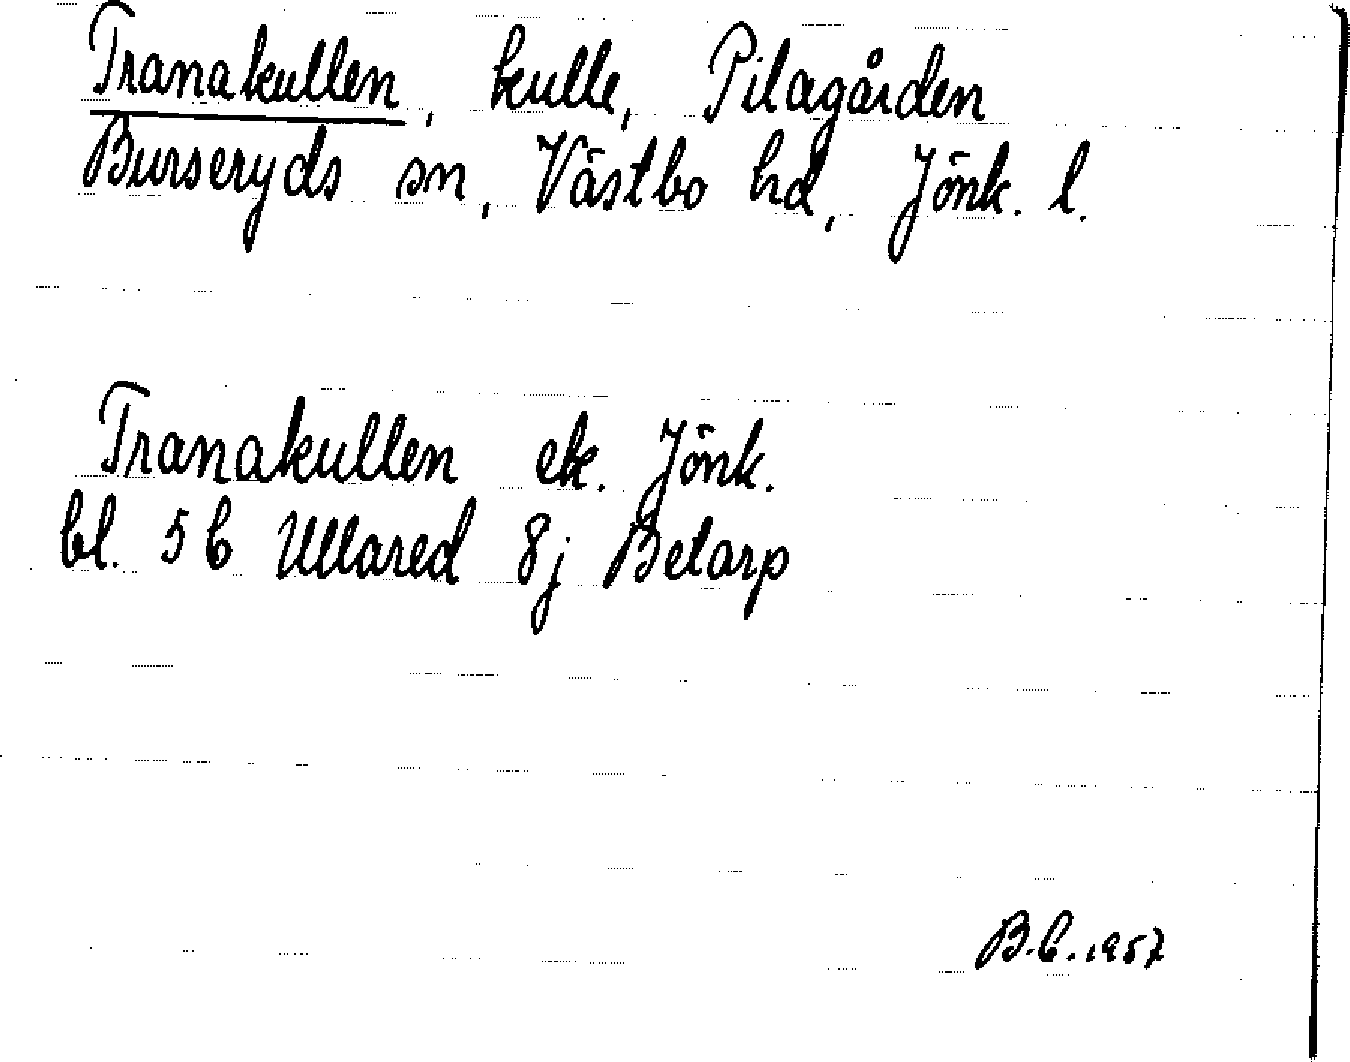 Tranakullen, kulle, Pilagården
Burseryds sn, Västbo hd, Jönk. l.
Tranakullen ek. Jönk.
bl. 5 6 Ullared 8j Betarp
B.C. 1957